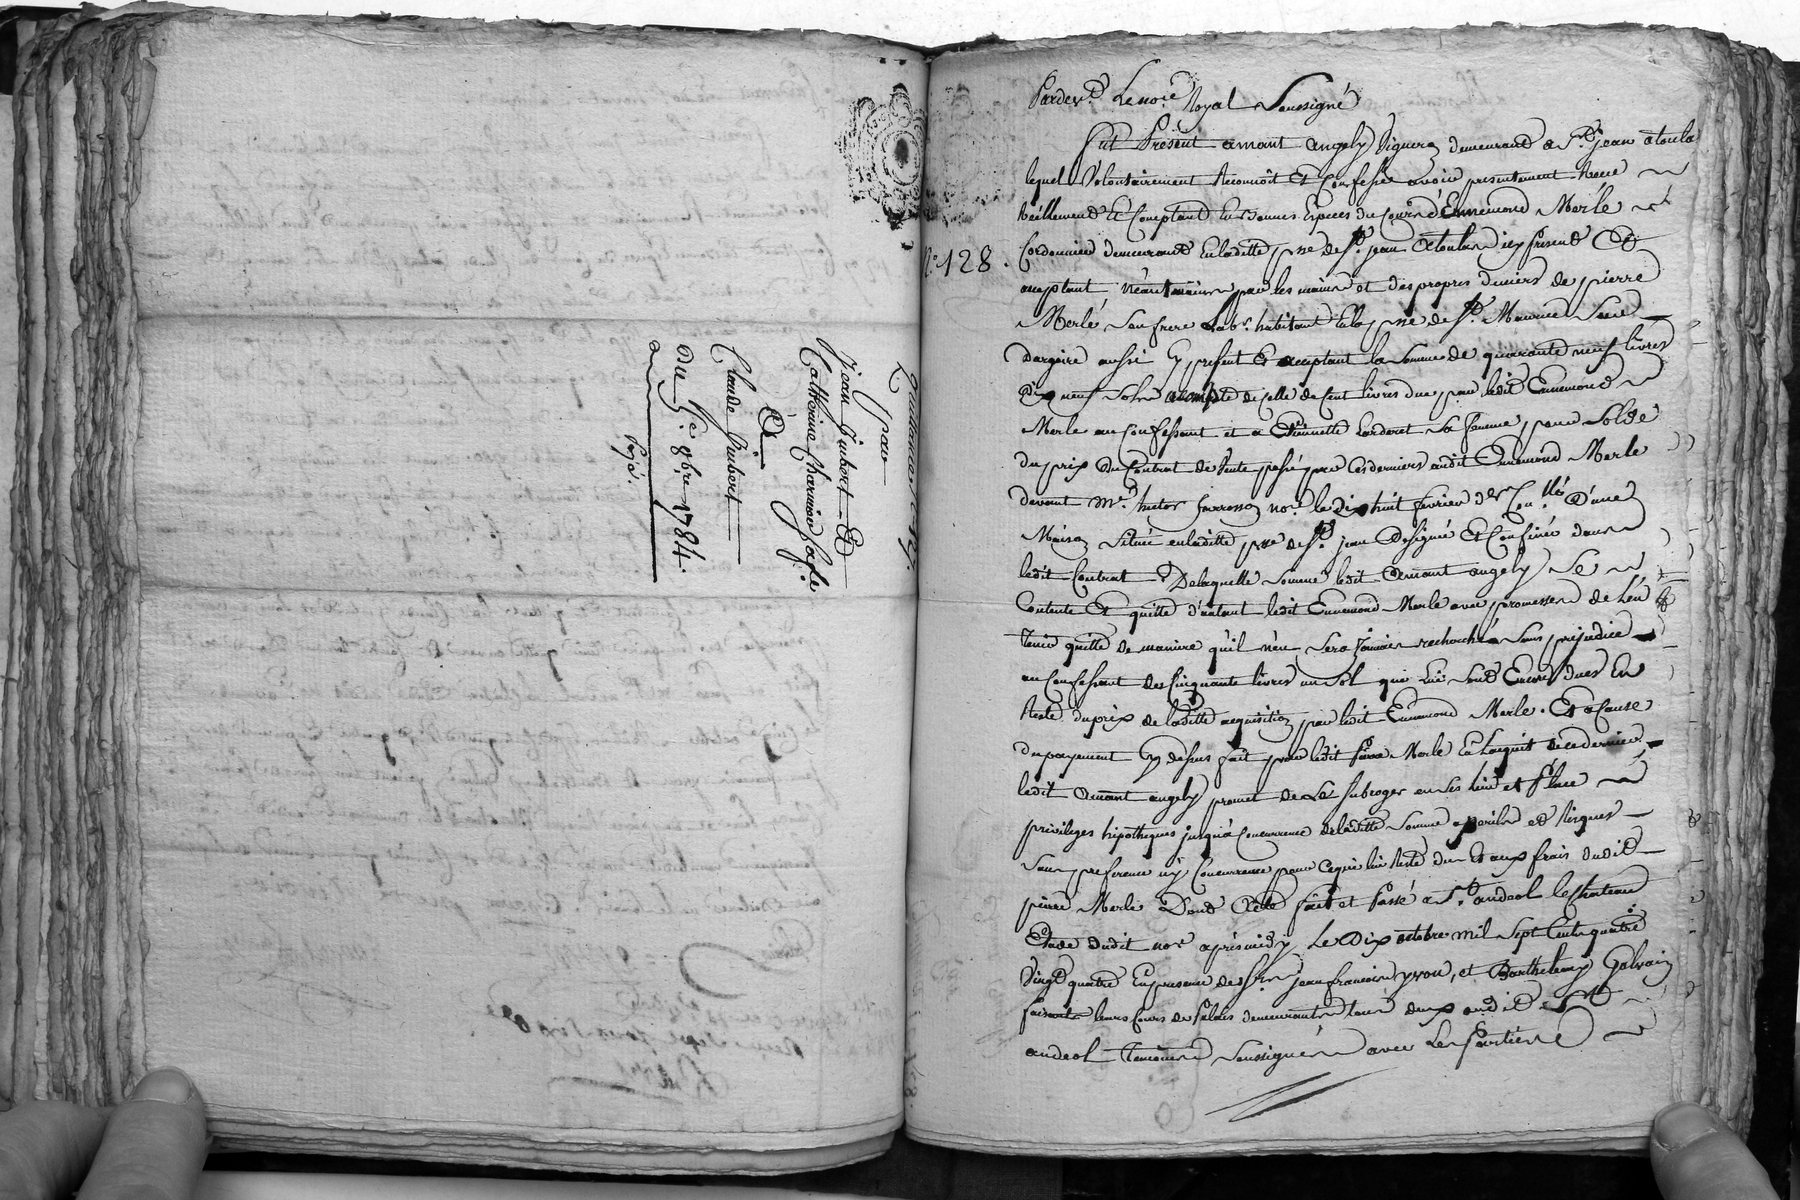 Quittance
pour
jean jubert Et
Catherine Charvin
De
Claude jubert
Du 5e 8bre 1784.
payé.
N.° 128.
Pardevt. Le nore. Royal Soussigné
fut Présent amant angely Vigneron demeurand a St. jean atoulas
lequel Volontairement Reconnoit Et Confesse avoir presentement Receu
Réellement Et Comptand En bonnes Especes du Cours d'Ennemond Merle
Cordonnier demeurand En laditte psse de St. jean atoulas icy present Et
acceptant neantmoins par les mains et des propres deniers de pierre
Merle son frere Labr. habitant En la psse de St. Maurice Sur
dargoire aussi Cy present Et acceptant la Somme de quarante neuf livres
dix neuf Sols acompte de Celle de Cent livres due par ledit Ennemond
Merle au Confessant et a Etiennette Larderet Sa femme pour Solde
du prix du Contrat de Vente passé par Ces derniers audit Ennemond Merle
devant Me. hector nore. le dix huit fevrier der. D'une
Maison Située en laditte psse de St. jean Designée Et Confinée dans
ledit Contrat De laquelle Somme ledit amant angely Se
Contente Et quitte d'autant ledit Ennemond Merle avec promesses de L'en
tenir quitte de maniere qu'il n'en Sera jamais recherché Sans prejudice
au Confessant des Cinquante livres un Sol qui Lui Sont Encore dues En
Reste du prix de laditte acquisition par ledit Ennemond Merle. Et a Cause
du payement Cy dessus fait par ledit Pierre Merle En Lacquit de ce dernier
ledit amant angely promet de Le Subroger en Ses lieu et Place
privileges hipotheques jusqu'a Concurrence de laditte Somme a perils et Risques
Sans preference ny Concurrence pour Ce qui lui Reste du Et aux frais dudit
pierre Merle Dont Acte fait et Passé a St. andeol le Chateau
Etude dudit nore apres midy Le Dix octobre mil Sept Cents quatre
Vingt quatre En presence de Srs. jean francois yvon, et Barthelemy Galvain
faisants leurs Cours de Palais demeurants tous deux audit St.
andeol temoins Soussignés avec Les Parties